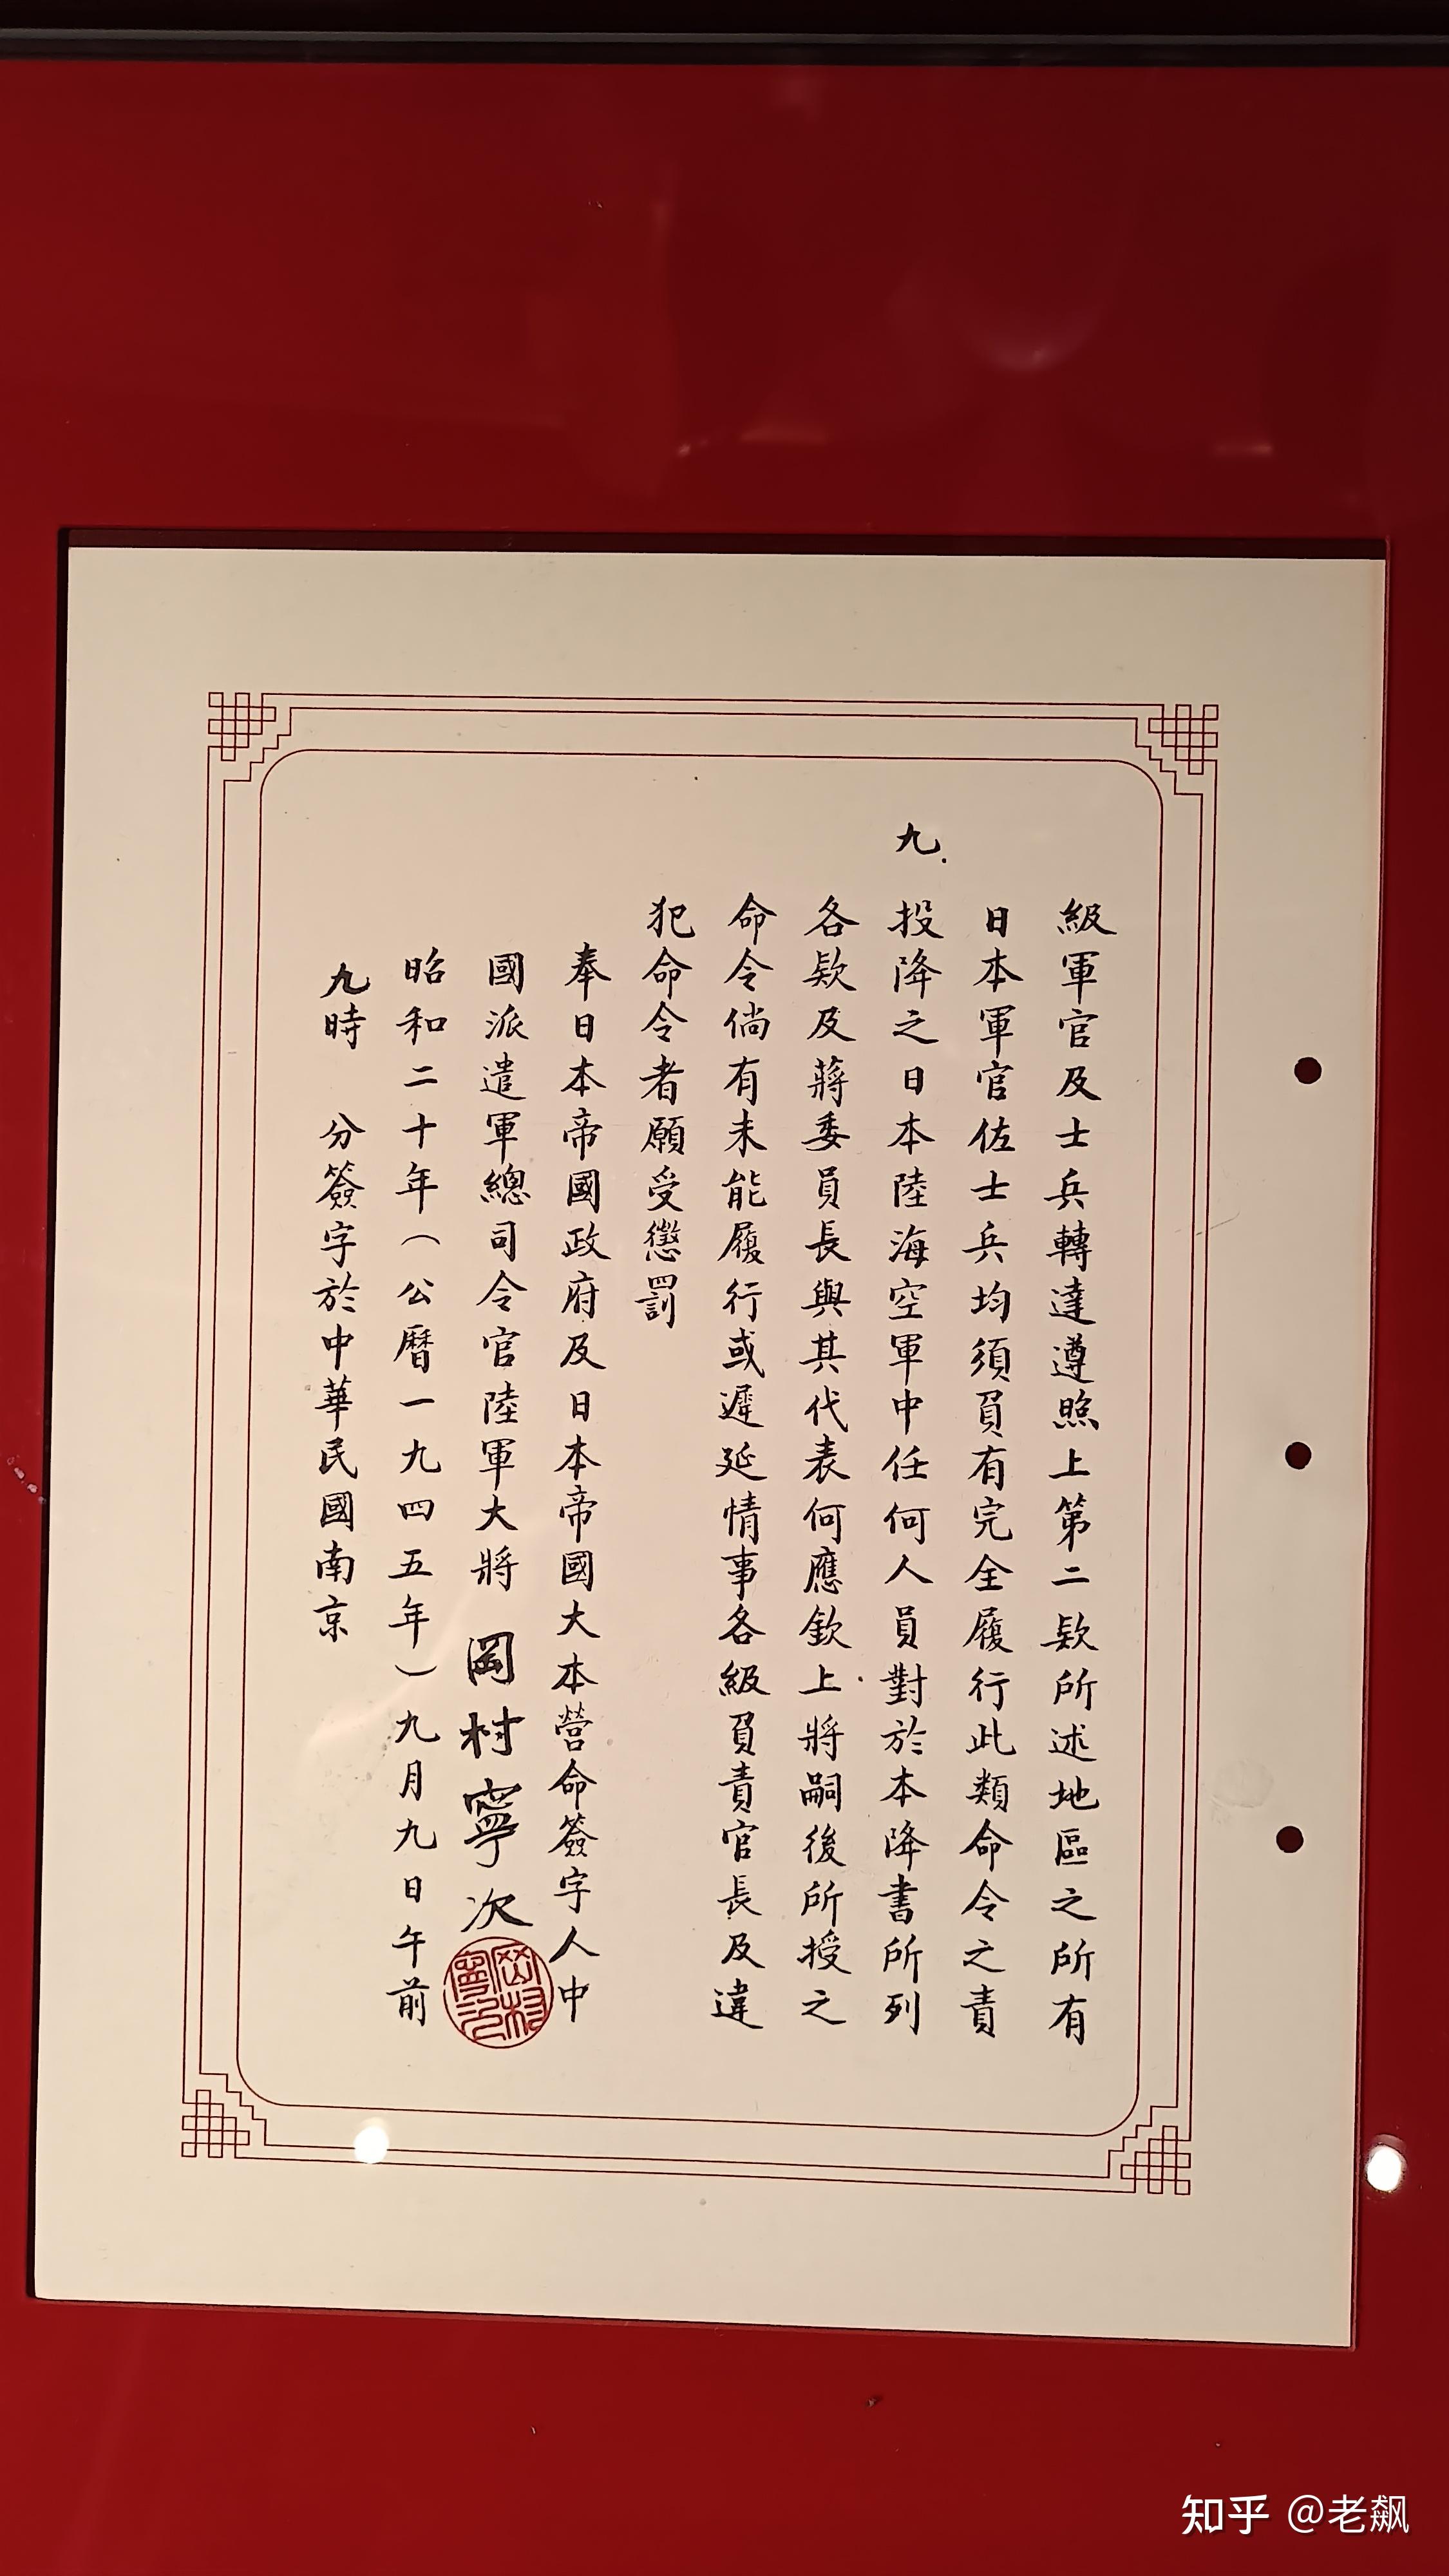 級軍官及士兵轉達遵照上第二欵所述地區之所有
日本軍官佐士兵均須負有完全履行此類命令之責
九.投降之日本陸海空軍中任何人員對於本降書所列
各欵及蔣委員長與其代表何應欽上將嗣後所授之
命令倘有未能履行或遲延情事各級負責官長及違
犯命令者願受懲罰
奉日本帝國政府及日本帝國大本營命簽字人中
國派遣軍總司令官陸軍大將 岡村寧次
昭和二十年(公曆一九四五年)九月九日午前
九時 分簽字於中華民國南京
知乎 @老飙